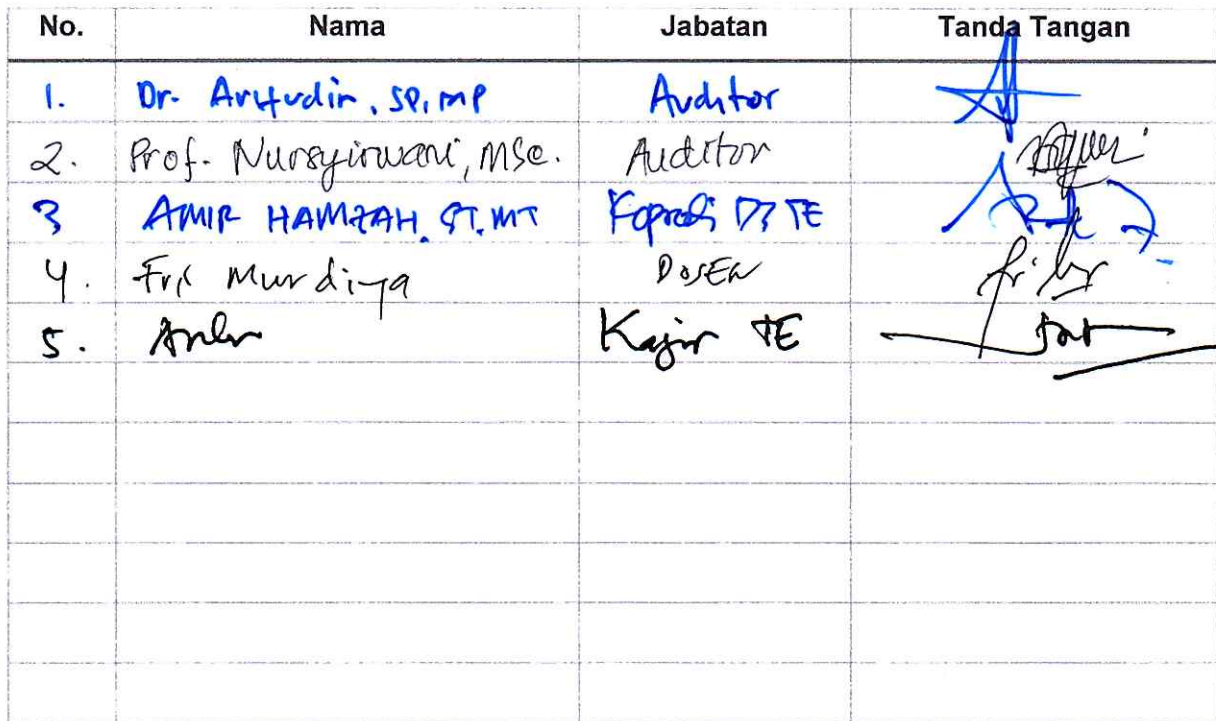 No. Nama Jabatan Tanda Tangan
1. Dr. Arifudin, SP, MP Auditor
2. Prof. Nursyirwani, MSc. Auditor
3 AMIR HAMZAH, ST, MT Kaprodi D3 TE
4. Fri Murdiya DOSEN
5. Kajur TE